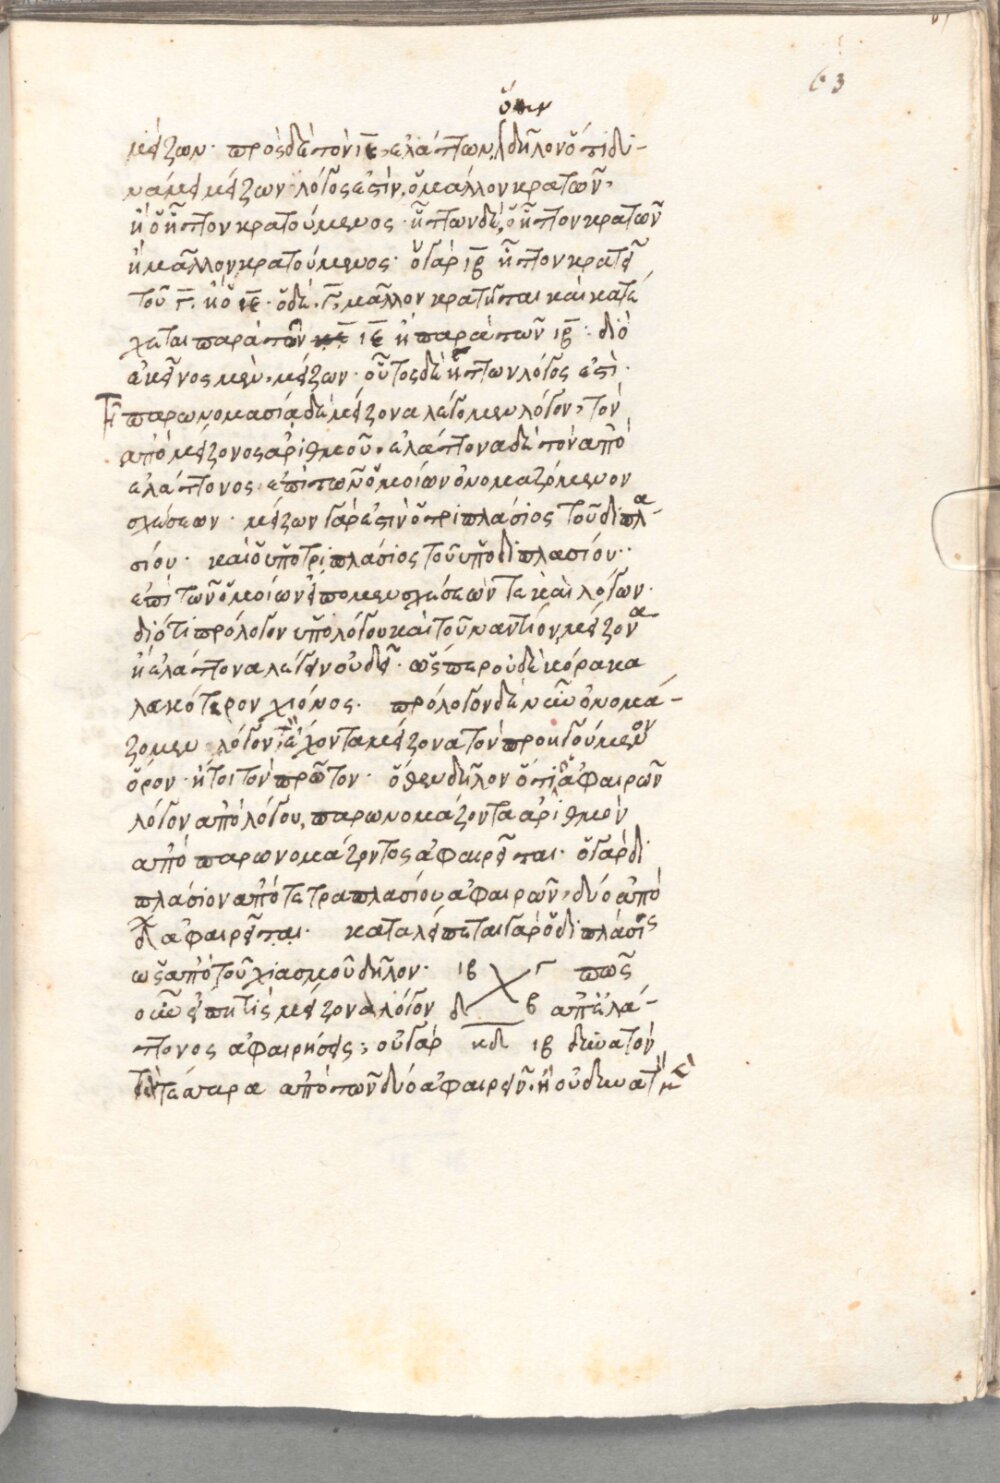 63
ὅθεν
μείζων· πρὸς δὲ τὸν ιε, ἐλάττων, δῆλον ὅτι δυ-
νάμει μείζων λόγος ἐστὶν, ὁ μᾶλλον κρατῶν,
ἢ ὁ ἧττον κρατούμενος· ἥττων δὲ, ὁ ἧττον κρατῶν
ἢ μᾶλλον κρατούμενος· ὁ γὰρ ιβ ἧττον κρατεῖ
τοῦ γ. ἢ ὁ ιε· ὁ δὲ γ, μᾶλλον κρατεῖται καὶ κατέ
χεται παρὰ τῶν ιε ἢ παρὰ τῶν ιβ· διὸ
ἐκεῖνος μὲν, μείζων· οὗτος δὲ ἥττων λόγος ἐστὶ·
Τῇ παρωνομασίᾳ δὲ μείζονα λέγομεν λόγον, τὸν
ἀπὸ μείζονος ἀριθμοῦ, ἐλάττονα δὲ τὸν ἀπὸ
ἐλάττονος ἐπὶ τῶν ὁμοίων ὀνομαζόμενον
σχέσεων· μείζων γάρ ἐστιν ὁ τριπλάσιος τοῦ διπλα
σίου· καὶ ὁ ὑποτριπλάσιος τοῦ ὑποδιπλασίου·
ἐπὶ τῶν ὁμοίων εἴπομεν σχέσεών τε καὶ λόγων·
διότι πρόλογον ὑπολόγου καὶ τοὐναντίον, μείζονα
ἢ ἐλάττονα λέγειν οὐ δεῖ· ὥσπερ οὐδὲ κόρακα
λευκότερον χιόνος· πρόλογον δὲ νῦν ὀνομά-
ζομεν λόγον τὸν ἔχοντα μείζονα τὸν προηγούμενον
ὅρον· ἤτοι τὸν πρῶτον· ὅθεν δῆλον ὅτι ὁ ἀφαιρῶν
λόγον ἀπὸ λόγου, παρωνομάζοντα ἀριθμὸν
ἀπὸ παρωνομάζοντος ἀφαιρεῖται· ὁ γὰρ δι
πλάσιον ἀπὸ τετραπλασίου ἀφαιρῶν, δύο ἀπὸ
δ ἀφαιρεῖται· καταλείπεται γὰρ ὁ διπλάσιος
ὡς ἀπὸ τοῦ χιασμοῦ δῆλον· ιβ γ πῶς
οὖν εἴπῃ τὶς μείζονα λόγον δ β ἀπ' ἐλά-
ττονος ἀφαιρήσεις; οὐ γὰρ κδ ιβ δυνατὸν
τὰ τέσσαρα ἀπὸ τῶν δύο ἀφαιρεῖν· ἢ οὐ δυνατὸν